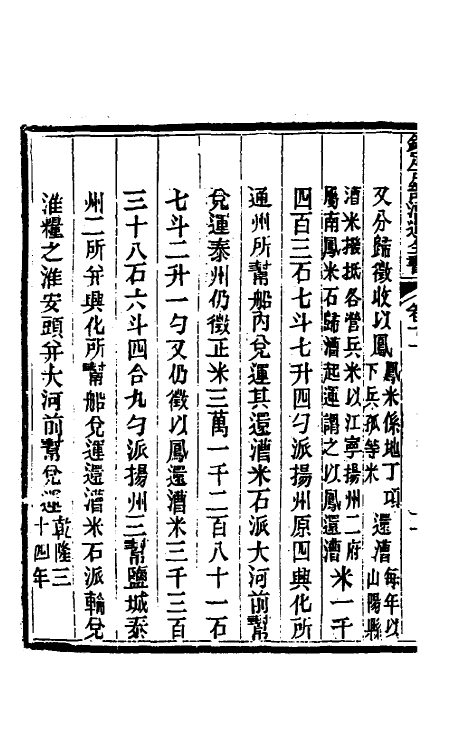 欽定戶部漕運全書
卷十一
又分歸徵收以鳳鳳米係地丁項下兵孤等米還漕每年以山陽縣
漕米撥抵各營兵米以江寧揚州二府屬南鳳米石歸漕起運謂之以鳳還漕米一千
四百三石七斗七升四勺派揚州原四興化所
通州所幫船內兌運其還漕米石派大河前幫
兌運泰州仍徵正米三萬一千二百八十一石
七斗二升一勺又仍徵以鳳還漕米三千三百
三十八石六斗四合九勺派揚州三幫鹽城泰
州二所幷興化所幫船兌運還漕米石派輪兌
淮糧之淮安頭幷大河前幫兌運乾隆三十四年